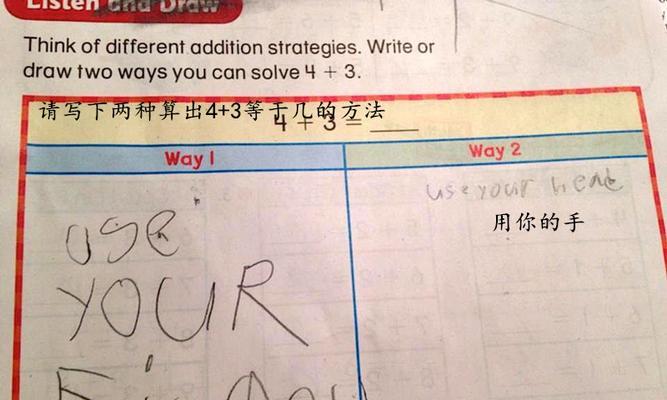 Listen and Draw
Think of different addition strategies. Write or
draw two ways you can solve 4 + 3.
请写下两种算出4+3等于几的方法
4 + 3 = ____
Way 1
Way 2
use your
用你的手
use
YOUR